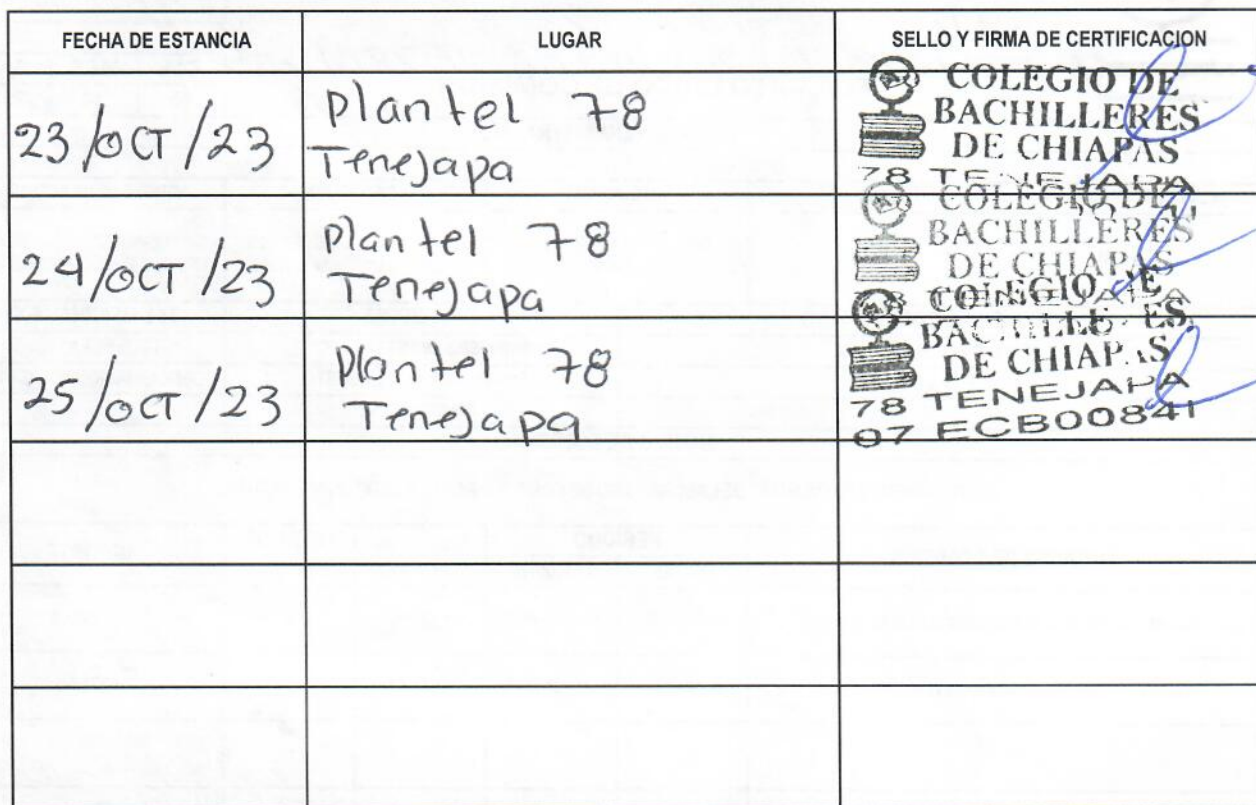 FECHA DE ESTANCIA
LUGAR
SELLO Y FIRMA DE CERTIFICACION
23/OCT/23
Plantel 78
Tenejapa
COLEGIO DE
BACHILLERES
DE CHIAPAS
78 TENEJAPA
24/OCT/23
Plantel 78
Tenejapa
COLEGIO DE
BACHILLERES
DE CHIAPAS
25/OCT/23
Plantel 78
Tenejapa
COLEGIO DE
BACHILLERES
DE CHIAPAS
78 TENEJAPA
07 ECB00841